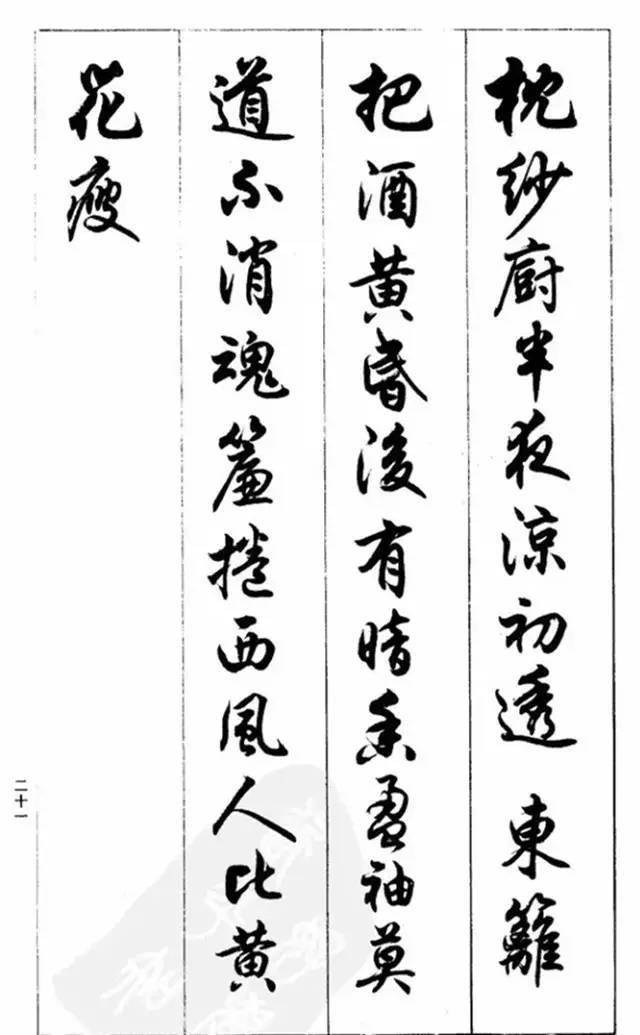 枕紗廚半夜涼初透 東籬
把酒黃昏後有暗香盈袖莫
道不消魂簾捲西風人比黃
花瘦
二十一